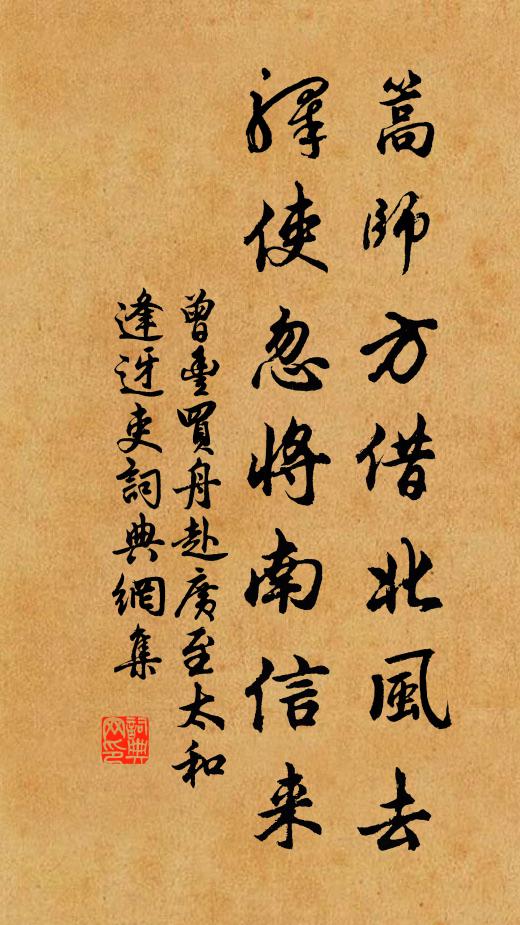 蒿師方借北風去
驛使忽將南信来
曾豊買舟赴廣至太和
逢迓吏詞典網集
詞典
网印